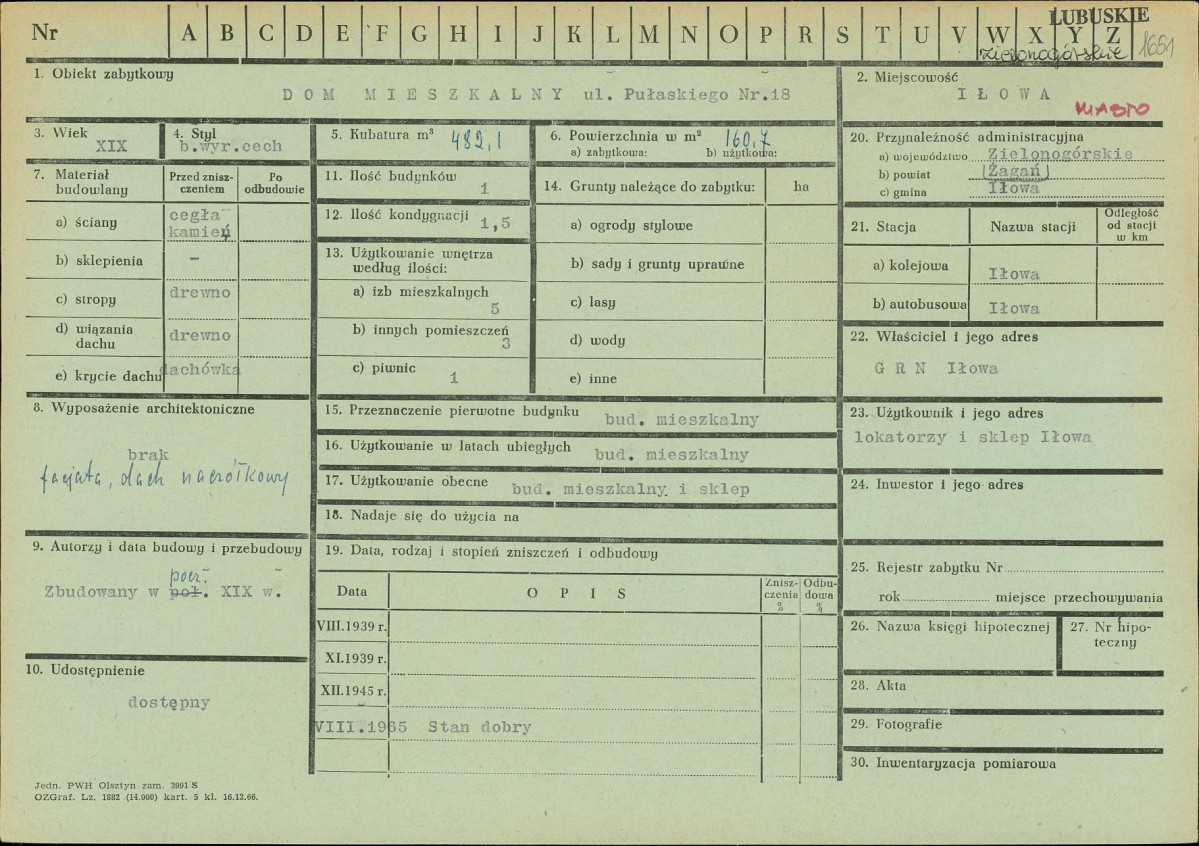 LUBUSKIE
Nr A B C D E F G H I J K L M N O P R S T U V W X Y Z 1651
zielonogórskie
1. Obiekt zabytkowy
DOM MIESZKALNY ul. Pułaskiego Nr.18
2. Miejscowość
IŁOWA
MIASTO
3. Wiek
XIX
4. Styl
b.wyr.cech
5. Kubatura m³ 482,1
6. Powierzchnia w m² 160,7
a) zabytkowa: b) użytkowa:
7. Materiał budowlany
Przed znisz-
czeniem
Po
odbudowie
a) ściany
cegła
kamień
b) sklepienia -
c) stropy drewno
d) wiązania
dachu drewno
e) krycie dachu dachówka
8. Wyposażenie architektoniczne
brak
facjata, dach naczółkowy
9. Autorzy i data budowy i przebudowy
pocz.
Zbudowany w poł. XIX w.
10. Udostępnienie
dostępny
11. Ilość budynków
1
12. Ilość kondygnacji
1,5
13. Użytkowanie wnętrza
według ilości:
a) izb mieszkalnych
5
b) innych pomieszczeń
3
c) piwnic
1
14. Grunty należące do zabytku: ha
a) ogrody stylowe
b) sady i grunty uprawne
c) lasy
d) wody
e) inne
15. Przeznaczenie pierwotne budynku bud. mieszkalny
16. Użytkowanie w latach ubiegłych bud. mieszkalny
17. Użytkowanie obecne bud. mieszkalny i sklep
18. Nadaje się do użycia na
19. Data, rodzaj i stopień zniszczeń i odbudowy
Data OPIS
Znisz-
czenia
%
Odbu-
dowa
%
VIII.1939 r.
XI.1939 r.
XII.1945 r.
VIII.1965 Stan dobry
20. Przynależność administracyjna
a) województwo Zielonogórskie
b) powiat (Żagań)
c) gmina Iłowa
21. Stacja Nazwa stacji
Odległość
od stacji
w km
a) kolejowa Iłowa
b) autobusowa Iłowa
22. Właściciel i jego adres
GRN Iłowa
23. Użytkownik i jego adres
lokatorzy i sklep Iłowa
24. Inwestor i jego adres
25. Rejestr zabytku Nr
rok miejsce przechowywania
26. Nazwa księgi hipotecznej
27. Nr hipo-
teczny
28. Akta
29. Fotografie
30. Inwentaryzacja pomiarowa
Jedn. PWH Olsztyn zam. 3991 S
OZGraf. Lz. 1882 (14.000) kart. 5 kl. 16.12.66.